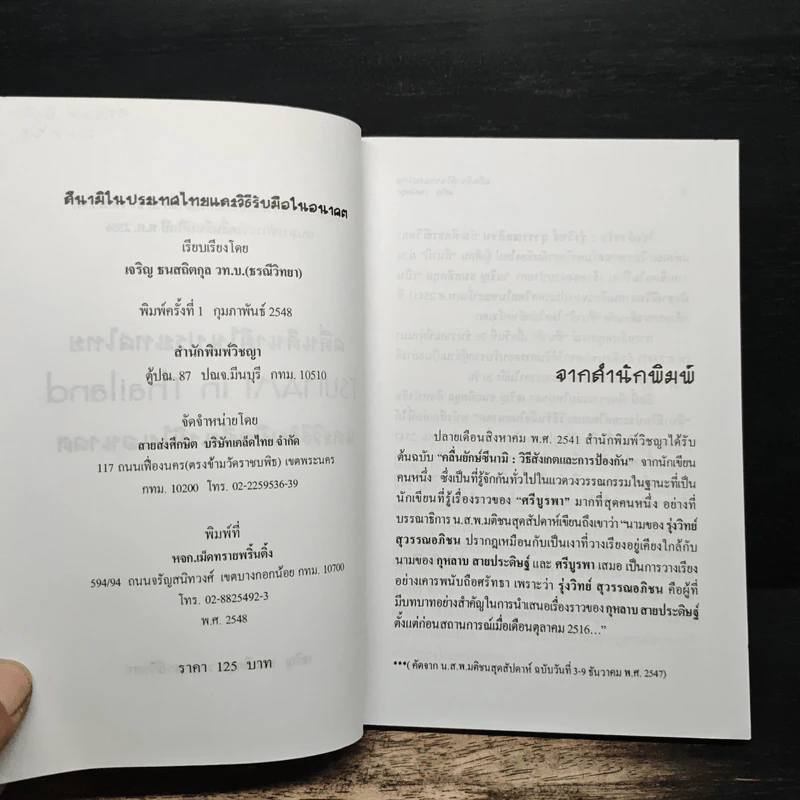 สึนามิในประเทศไทยและวิธีรับมือในอนาคต
เรียบเรียงโดย
เจริญ ธนสถิตกุล วท.บ.(ธรณีวิทยา)
พิมพ์ครั้งที่ 1 กุมภาพันธ์ 2548
สำนักพิมพ์วิชญา
ตู้ปณ. 87 ปณจ.มีนบุรี กทม. 10510
จัดจำหน่ายโดย
สายส่งศึกษิต บริษัทเคล็ดไทย จำกัด
117 ถนนเฟื่องนคร(ตรงข้ามวัดราชบพิธ) เขตพระนคร
กทม. 10200 โทร. 02-2259536-39
พิมพ์ที่
หจก.เม็ดทรายพริ้นติ้ง
594/94 ถนนจรัญสนิทวงศ์ เขตบางกอกน้อย กทม. 10700
โทร. 02-8825492-3
พ.ศ. 2548
ราคา 125 บาท
จากสำนักพิมพ์
ปลายเดือนสิงหาคม พ.ศ. 2541 สำนักพิมพ์วิชญาได้รับ
ต้นฉบับ "คลื่นยักษ์ซึนามิ : วิธีสังเกตและการป้องกัน" จากนักเขียน
คนหนึ่ง ซึ่งเป็นที่รู้จักกันทั่วไปในแวดวงวรรณกรรมในฐานะที่เป็น
นักเขียนที่รู้เรื่องราวของ "ศรีบูรพา" มากที่สุดคนหนึ่ง อย่างที่
บรรณาธิการ น.ส.พ.มติชนสุดสัปดาห์เขียนถึงเขาว่า "นามของ รุ่งวิทย์
สุวรรณอภิชน ปรากฏเหมือนกับเป็นเงาที่วางเรียงอยู่เคียงใกล้กับ
นามของ กุหลาบ สายประดิษฐ์ และ ศรีบูรพา เสมอ เป็นการวางเรียง
อย่างเคารพนับถือศรัทธา เพราะว่า รุ่งวิทย์ สุวรรณอภิชน คือผู้ที่
มีบทบาทอย่างสำคัญในการนำเสนอเรื่องราวของ กุหลาบ สายประดิษฐ์
ตั้งแต่ก่อนสถานการณ์เมื่อเดือนตุลาคม 2516..."
***( คัดจาก น.ส.พ.มติชนสุดสัปดาห์ ฉบับวันที่ 3-9 ธันวาคม พ.ศ. 2547)